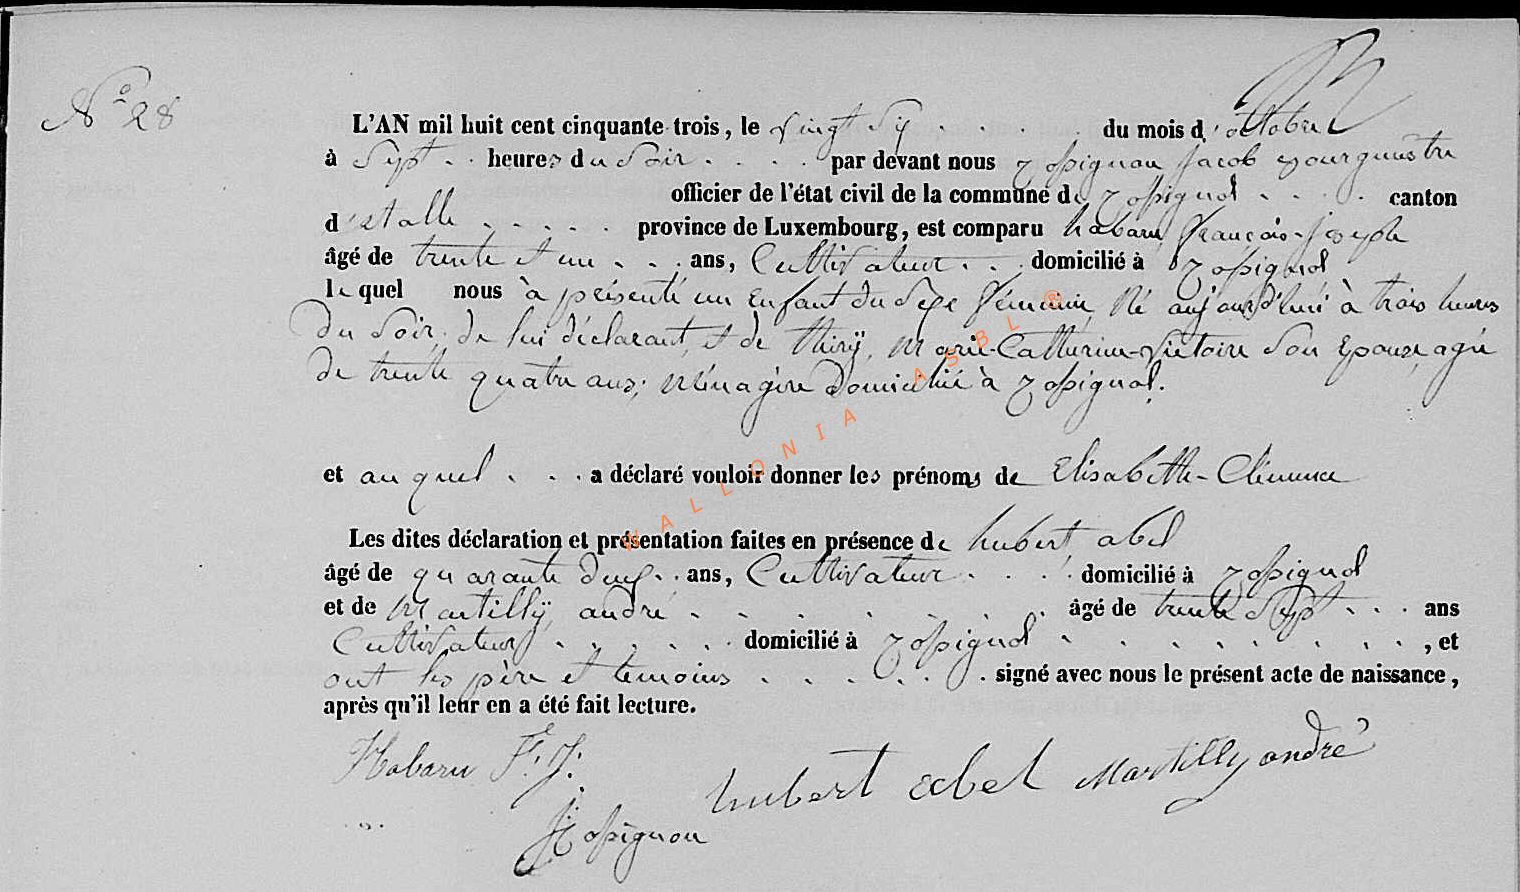 N° 28
L'AN mil huit cent cinquante trois, le Vingt Six . . . . . du mois d'octobre
à Sept . . heures du Soir . . . . par devant nous Rossignon Jacob Bourguestre
officier de l'état civil de la commune de Rossignol . . . . canton
d'etalle . . . . . province de Luxembourg, est comparu habaru françois-joseph
âgé de trente et un . . . ans, Cultivateur . . . domicilié à Rossignol
lequel nous à présenté un Enfant du Sexe féminin Né aujourd'hui à trois heures
du Soir, de lui déclarant, et de thirÿ, Marie-Catherine-Victoire Son Epouse, agée
de trente quatre ans; Ménagère Domiciliée à Rossignol.
et auquel . . . a déclaré vouloir donner les prénoms de Elisabeth-Clémence
Les dites déclaration et présentation faites en présence de hubert, abel
âgé de quarante deux . . ans, Cultivateur . . . . domicilié à Rossignol
et de Martillÿ, andré . . . . . . . . âgé de trente Sept . . . ans
Cultivateur . . . . . . domicilié à Rossignol . . . . . . . . . , et
ont les père et temoins . . . . . . signé avec nous le présent acte de naissance,
après qu'il leur en a été fait lecture.
Habaru F. J.
hubert abel
Martilly andré
J Rossignon
WALLONIA ASBL ®